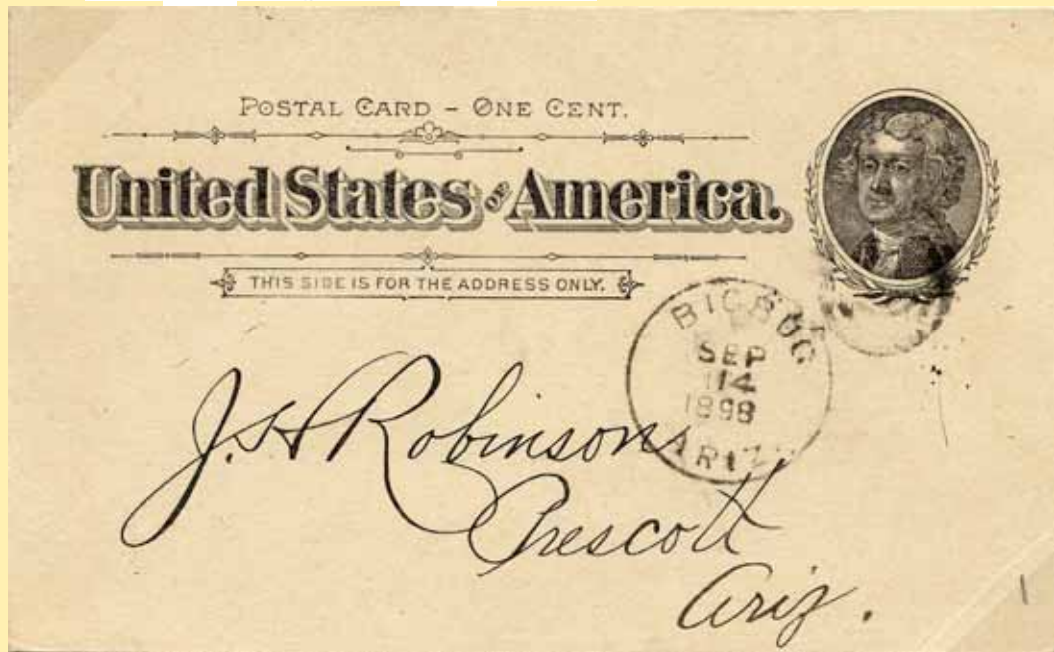 POSTAL CARD – ONE CENT.
United States OF America.
THIS SIDE IS FOR THE ADDRESS ONLY.
BIGBUG
SEP
14
1898
ARIZ
J. S. Robinson
Prescott
Ariz.